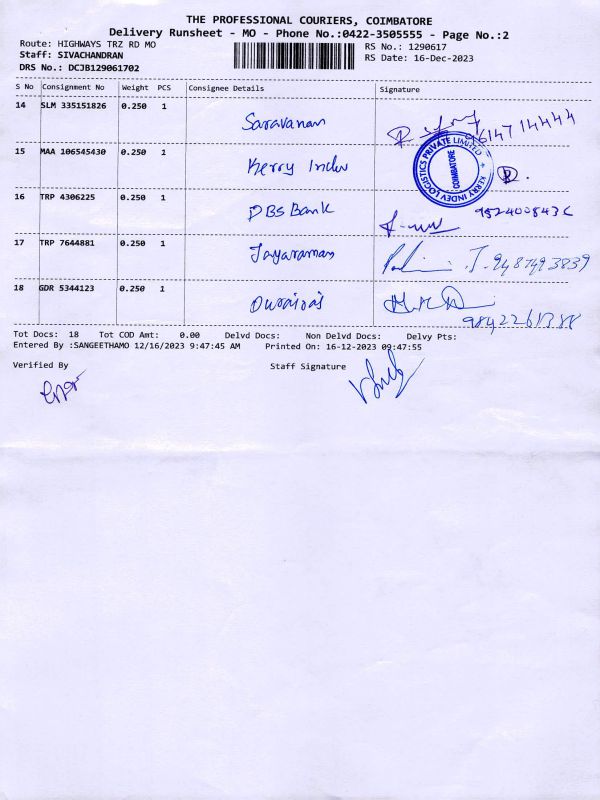 THE PROFESSIONAL COURIERS, COIMBATORE
Delivery Runsheet - MO - Phone No.:0422-3505555 - Page No.:2
Route: HIGHWAYS TRZ RD MO
RS No.: 1290617
Staff: SIVACHANDRAN
RS Date: 16-Dec-2023
DRS No.: DCJB129061702
S No Consignment No Weight PCS Consignee Details Signature
14 SLM 335151826 0.250 1 Saravanan 9614714444
15 MAA 106545430 0.250 1 Kerry Indev
KERRY INDEV LOGISTICS PRIVATE LIMITED
COIMBATORE
16 TRP 4306225 0.250 1 DBS Bank
17 TRP 7644881 0.250 1 Jayaraman 9487493839
18 GDR 5344123 0.250 1 Durairaj
Tot Docs: 18 Tot COD Amt: 0.00 Delvd Docs: Non Delvd Docs: Delvy Pts:
Entered By :SANGEETHAMO 12/16/2023 9:47:45 AM Printed On: 16-12-2023 09:47:55
Verified By Staff Signature